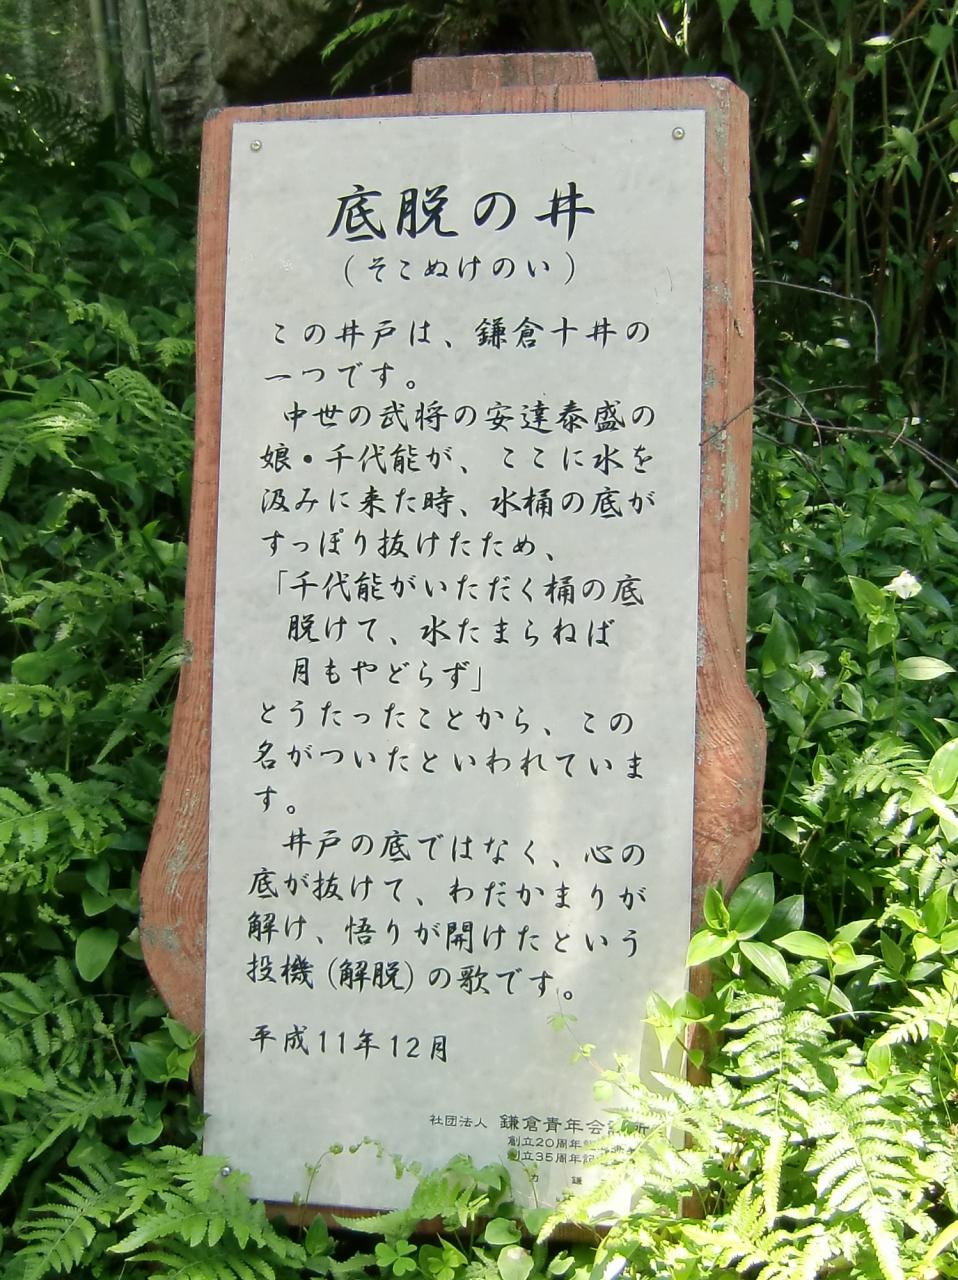 底脱の井
(そこぬけのい)
この井戸は、鎌倉十井の
一つです。
中世の武将の安達泰盛の
娘・千代能が、ここに水を
汲みに来た時、水桶の底が
すっぽり抜けたため、
「千代能がいただく桶の底
脱けて、水たまらねば
月もやどらず」
とうたったことから、この
名がついたといわれていま
す。
井戸の底ではなく、心の
底が抜けて、わだかまりが
解け、悟りが開けたという
投機(解脱)の歌です。
平成11年12月
社団法人 鎌倉青年会
創立20周年
創立35周年記
力 鎌